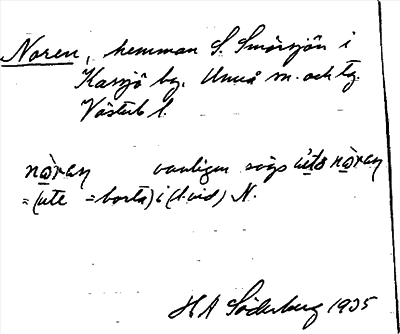 Noren, hemman S. Smörsjön i
Kassjö by, Umeå s. och tg.
Västerb l.
nòran vanligen sägs ùte nòran
= (ute = borta) i (l. vid) N.
H A Söderberg 1935